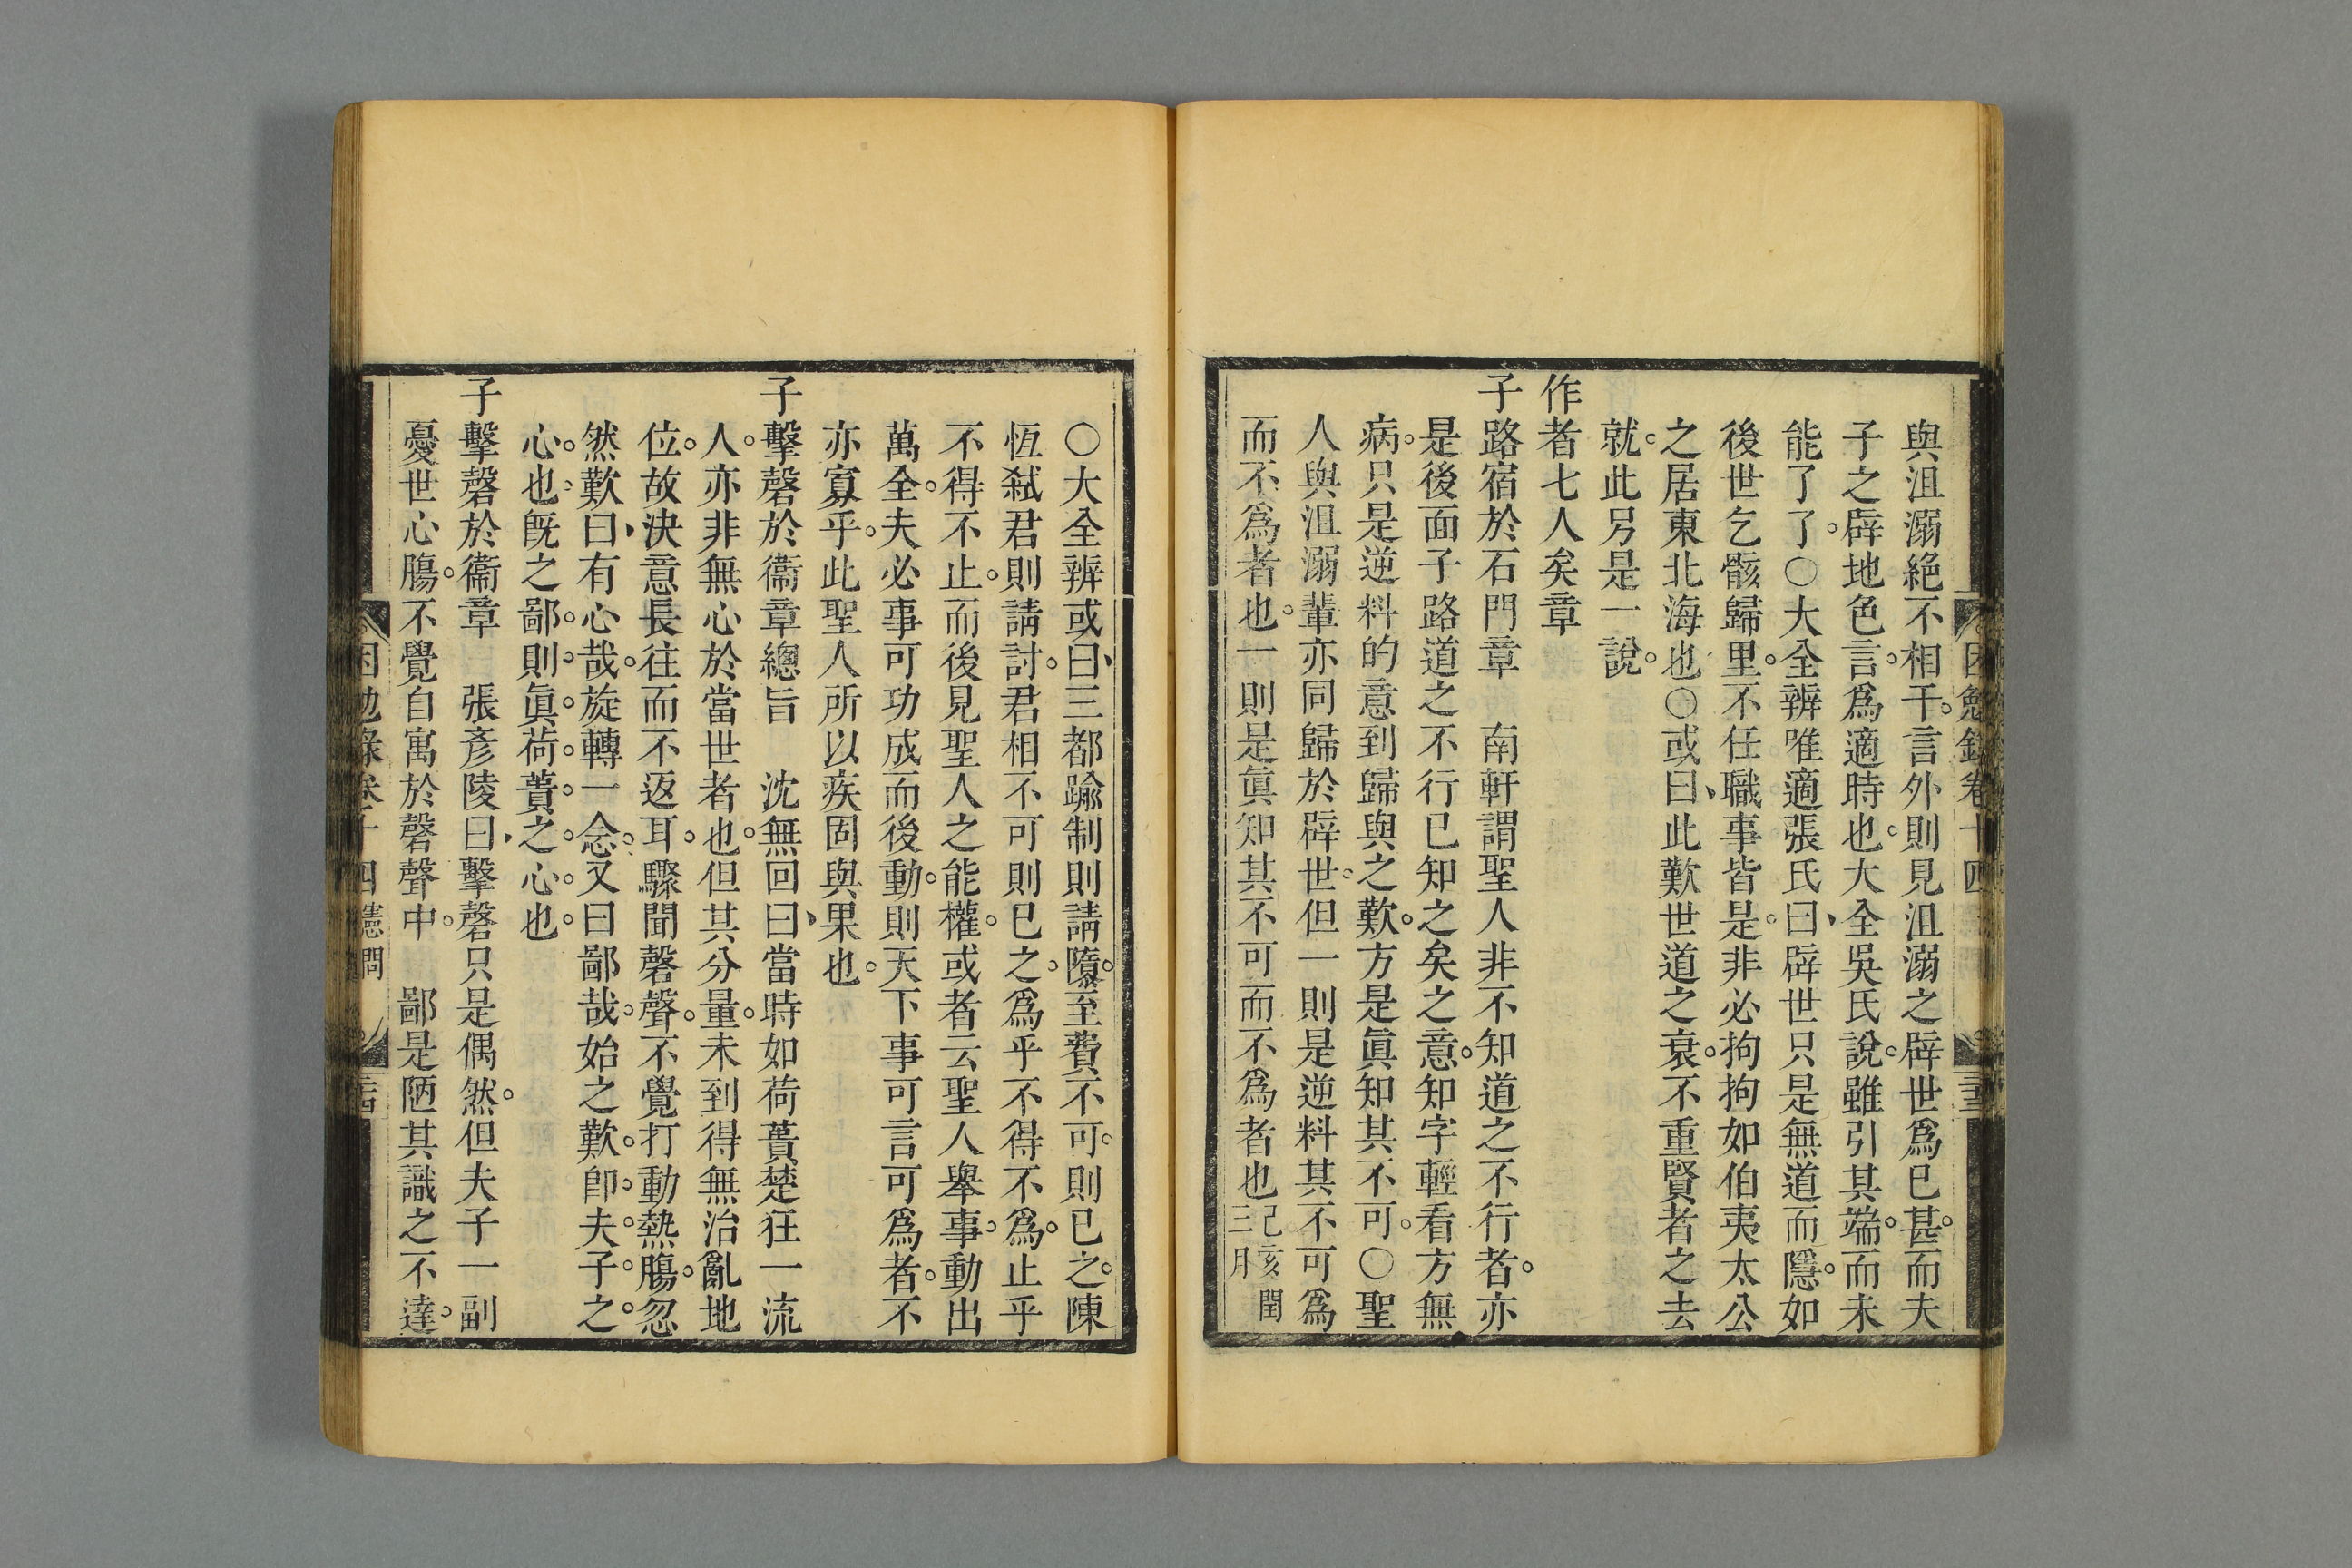 與沮溺絕不相干言外則見沮溺之辟世爲已甚而夫
子之辟地色言爲適時也大全吳氏說雖引其端而未
能了了○大全辨唯適張氏曰辟世只是無道而隱如
後世乞骸歸里不任職事皆是非必拘拘如伯夷太公
之居東北海也○或曰此歎世道之衰不重賢者之去
就此另是一說
作者七人矣章
子路宿於石門章　南軒謂聖人非不知道之不行者亦
是後面子路道之不行已知之矣之意知字輕看方無
病只是逆料的意到歸與之歎方是眞知其不可○聖
人與沮溺輩亦同歸於辟世但一則是逆料其不可爲
而不爲者也一則是眞知其不可而不爲者也己亥閏三月
○大全辨或曰三都踰制則請墮至費不可則已之陳
恆弑君則請討君相不可則已之爲乎不得不爲止乎
不得不止而後見聖人之能權或者云聖人舉事動出
萬全夫必事可功成而後動則天下事可言可爲者不
亦寡乎此聖人所以疾固與果也
子擊磬於衞章總旨　沈無回曰當時如荷蕢楚狂一流
人亦非無心於當世者也但其分量未到得無治亂地
位故決意長往而不返耳驟聞磬聲不覺打動熱腸忽
然歎曰有心哉旋轉一念又曰鄙哉始之歎卽夫子之
心也旣之鄙則眞荷蕢之心也
子擊磬於衞章　張彥陵曰擊磬只是偶然但夫子一副
憂世心腸不覺自寓於磬聲中　鄙是陋其識之不達
困勉錄卷十四憲問　二十四